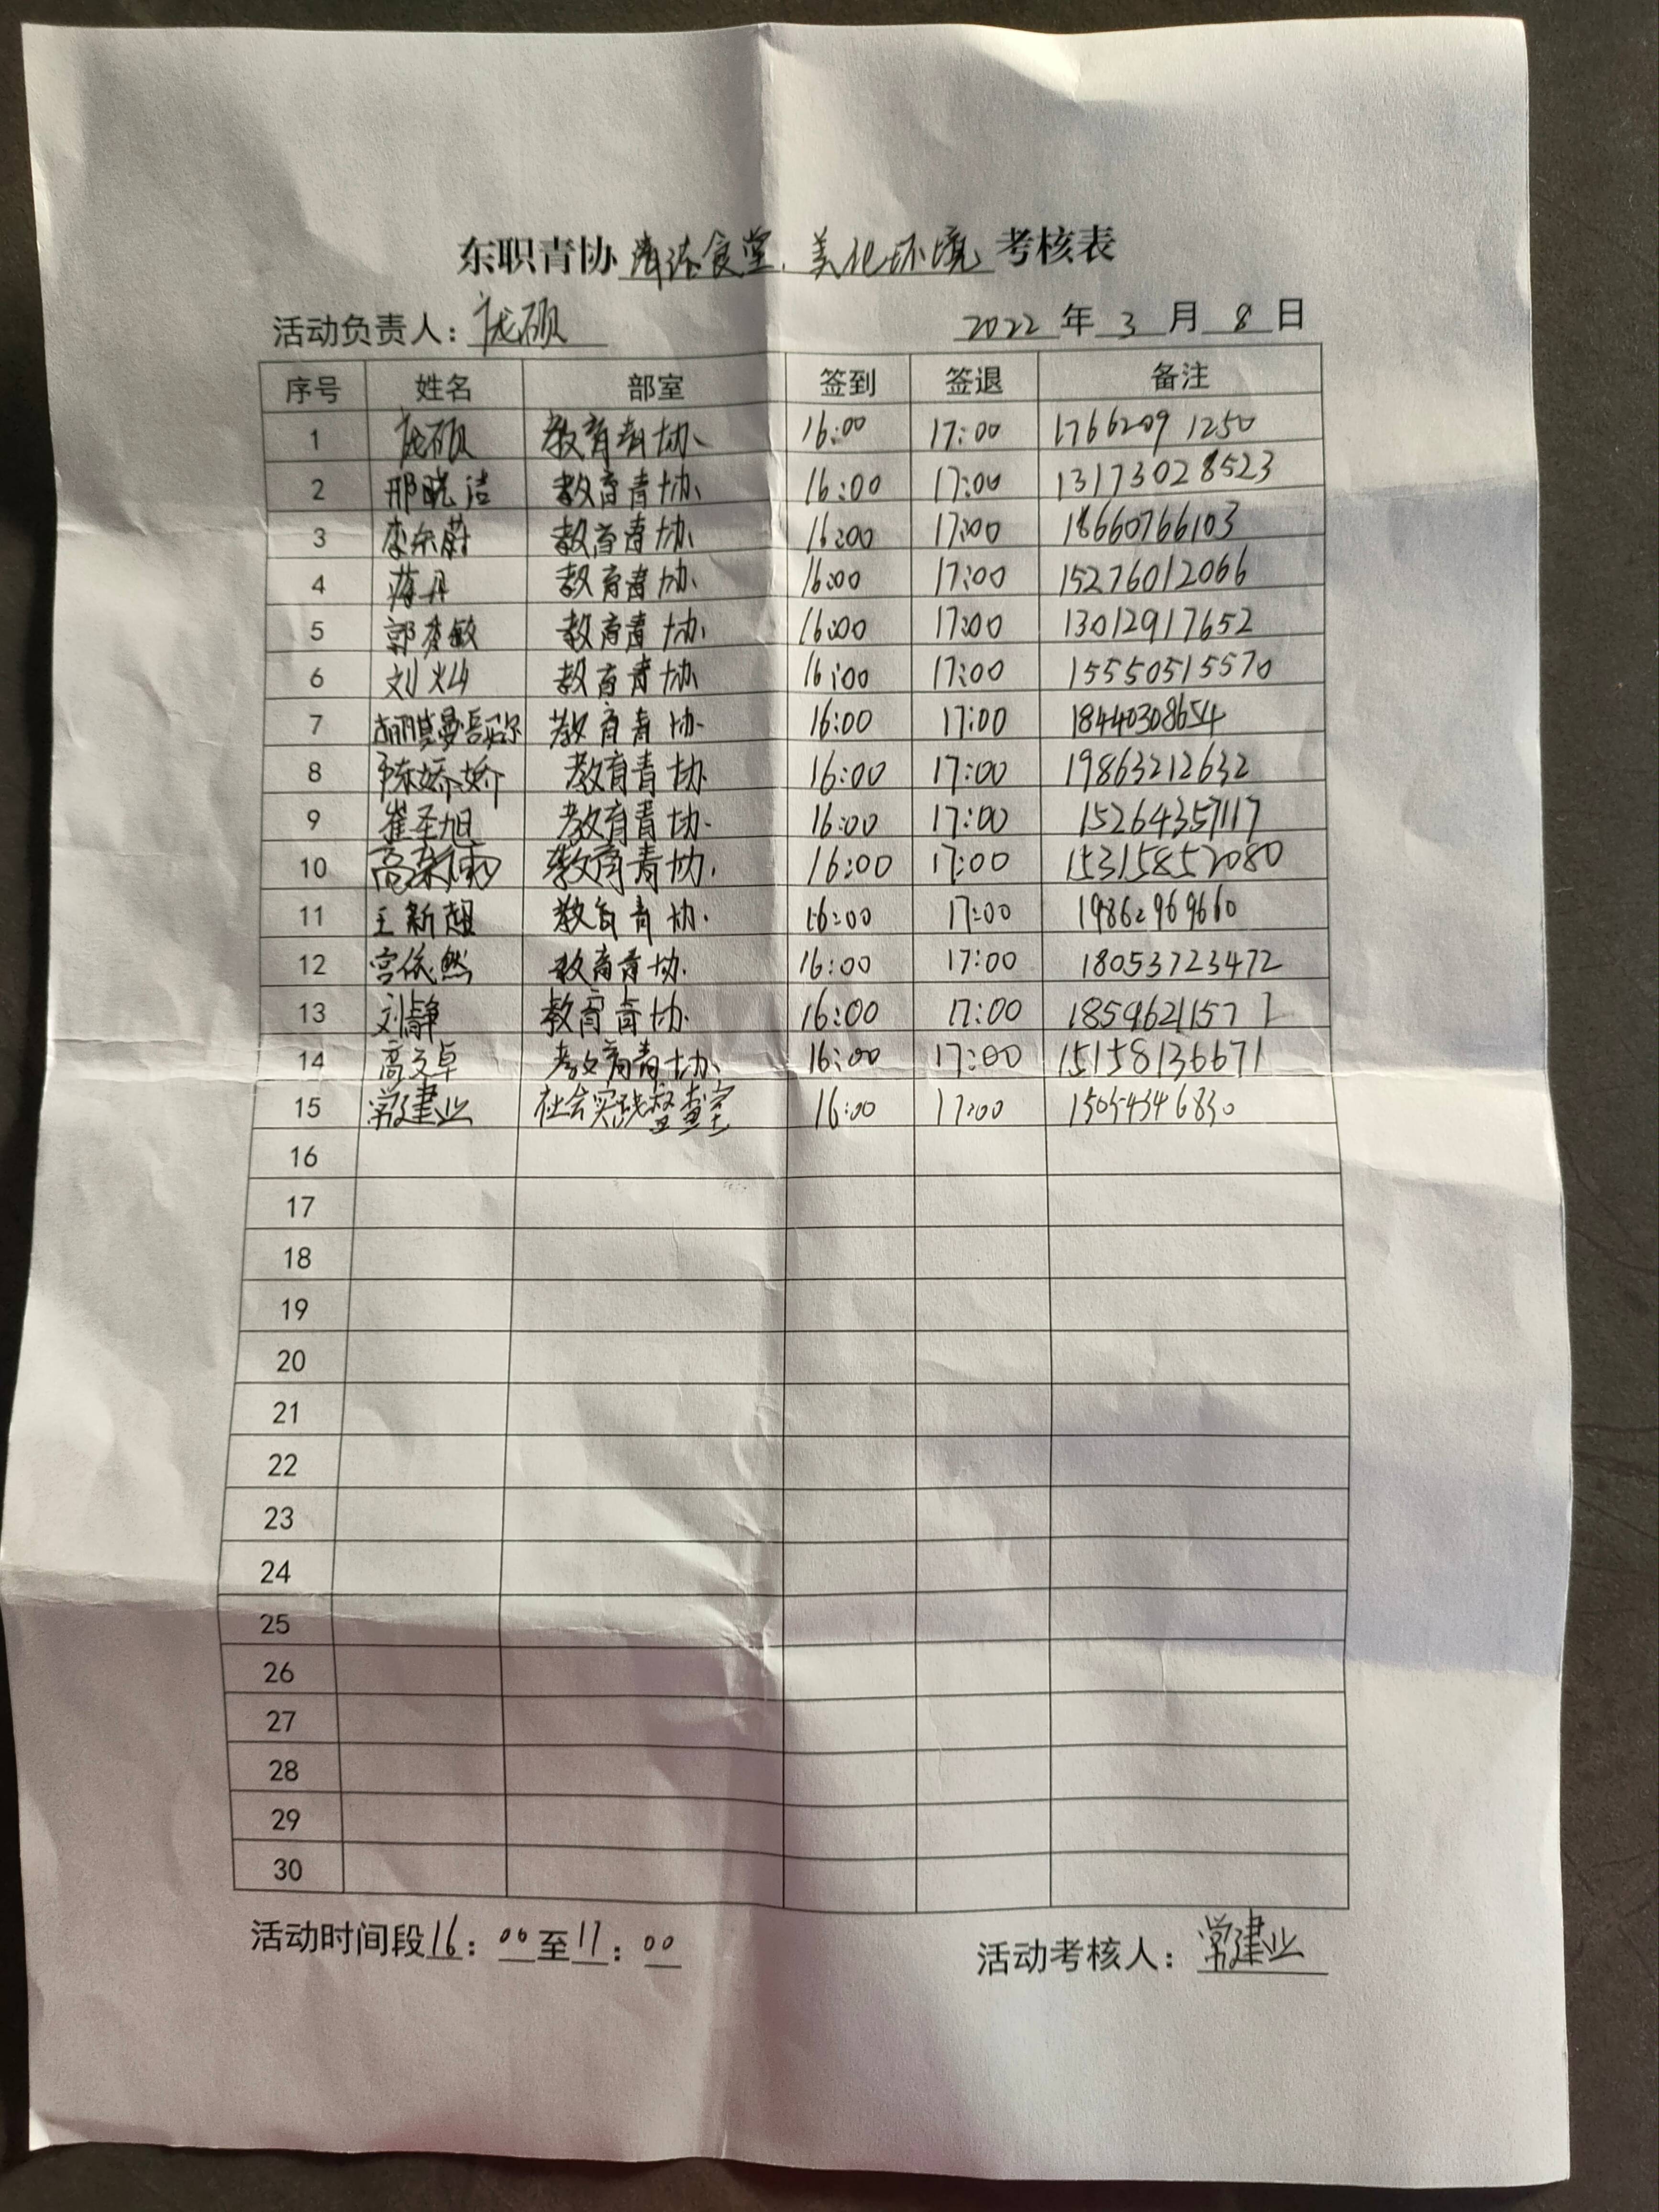 东职青协清洁食堂、美化环境考核表
活动负责人：庞硕 2022年3月8日
序号 姓名 部室 签到 签退 备注
1 庞硕 教育青协 16:00 17:00 17662091250
2 邢晓洁 教育青协 16:00 17:00 13173028523
3 李东蔚 教育青协 16:00 17:00 18660766103
4 蒋丹 教育青协 16:00 17:00 15276012066
5 郭秀敏 教育青协 16:00 17:00 13012917652
6 刘灿 教育青协 16:00 17:00 15550515570
7 教育青协 16:00 17:00 18440308654
8 陈娇娇 教育青协 16:00 17:00 19863212632
9 崔圣旭 教育青协 16:00 17:00 15264357117
10 教育青协 16:00 17:00 15315852080
11 王新超 教育青协 16:00 17:00 19862969660
12 宫依然 教育青协 16:00 17:00 18053723472
13 刘静 教育青协 16:00 17:00 18596211571
14 高文卓 教育青协 16:00 17:00 15158136671
15 常建业 社会实践督查室 16:00 17:00 15054346830
16
17
18
19
20
21
22
23
24
25
26
27
28
29
30
活动时间段16：00至17：00 活动考核人：常建业